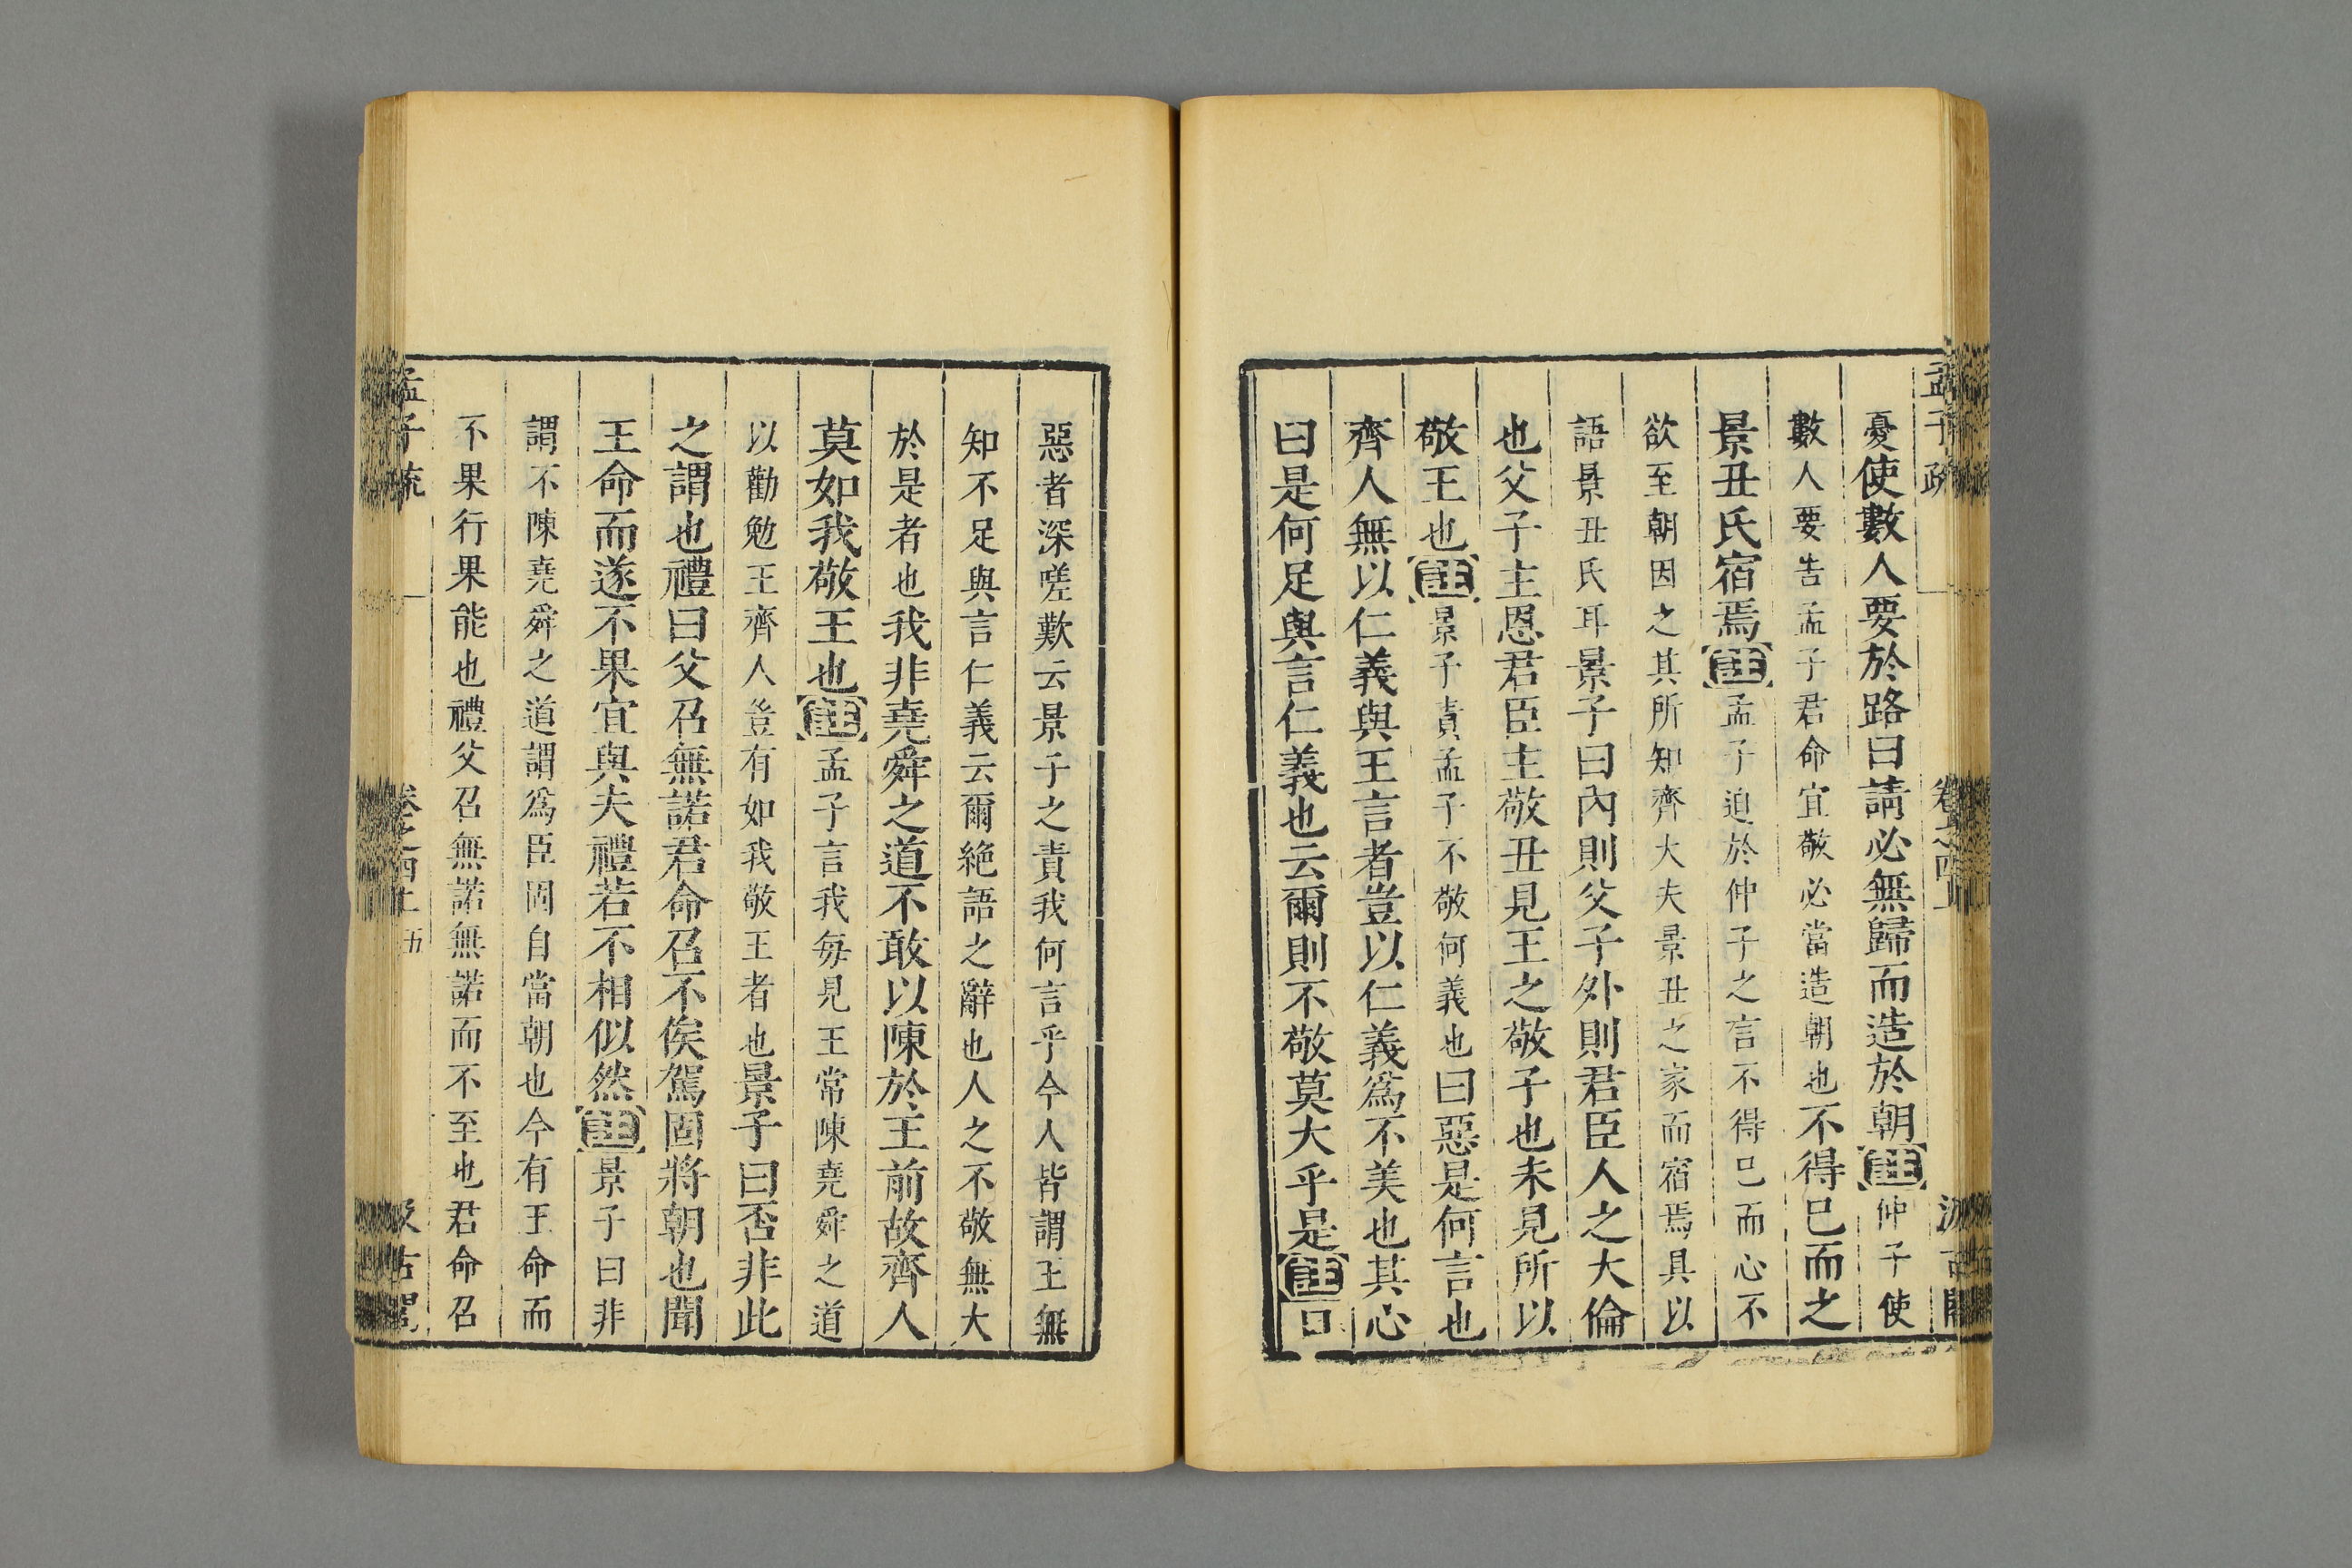 孟子疏
憂使數人要於路曰請必無歸而造於朝註仲子使
數人要告孟子君命宜敬必當造朝也不得已而之
景丑氏宿焉註孟子迫於仲子之言不得已而心不
欲至朝因之其所知齊大夫景丑之家而宿焉具以
語景丑氏耳景子曰內則父子外則君臣人之大倫
也父子主恩君臣主敬丑見王之敬子也未見所以
敬王也註景子責孟子不敬何義也曰惡是何言也
齊人無以仁義與王言者豈以仁義爲不美也其心
曰是何足與言仁義也云爾則不敬莫大乎是註曰
惡者深嗟歎云景子之責我何言乎今人皆謂王無
知不足與言仁義云爾絶語之辭也人之不敬無大
於是者也我非堯舜之道不敢以陳於王前故齊人
莫如我敬王也註孟子言我每見王常陳堯舜之道
以勸勉王齊人豈有如我敬王者也景子曰否非此
之謂也禮曰父召無諾君命召不俟駕固將朝也聞
王命而遂不果宜與夫禮若不相似然註景子曰非
謂不陳堯舜之道謂爲臣固自當朝也今有王命而
不果行果能也禮父召無諾無諾而不至也君命召
孟子疏 卷之四上 五